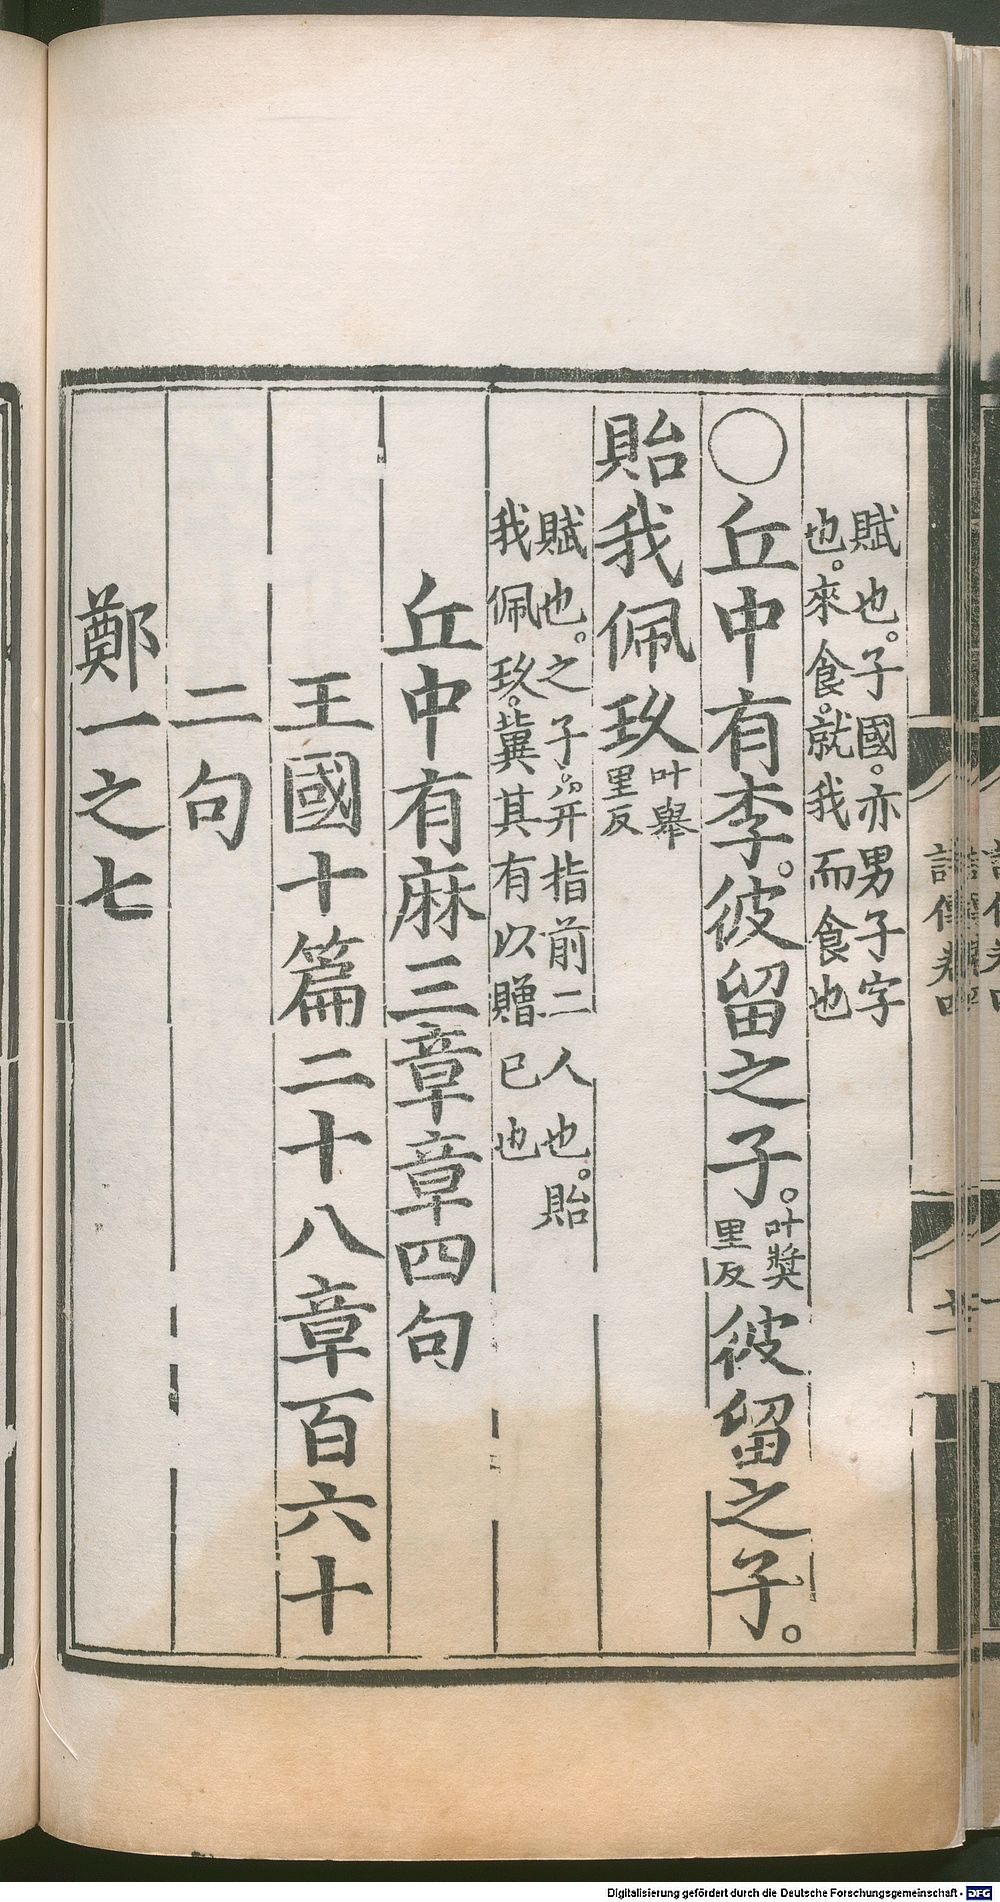 賦也。子國。亦男子字
也。來食。就我而食也
○丘中有李。彼留之子。叶獎里反彼留之子。
貽我佩玖叶舉里反
賦也。之子。并指前二人也。貽
我佩玖。冀其有以贈已也
丘中有麻三章章四句
王國十篇二十八章百六十
二句
鄭一之七
Digitalisierung gefördert durch die Deutsche Forschungsgemeinschaft - DFG